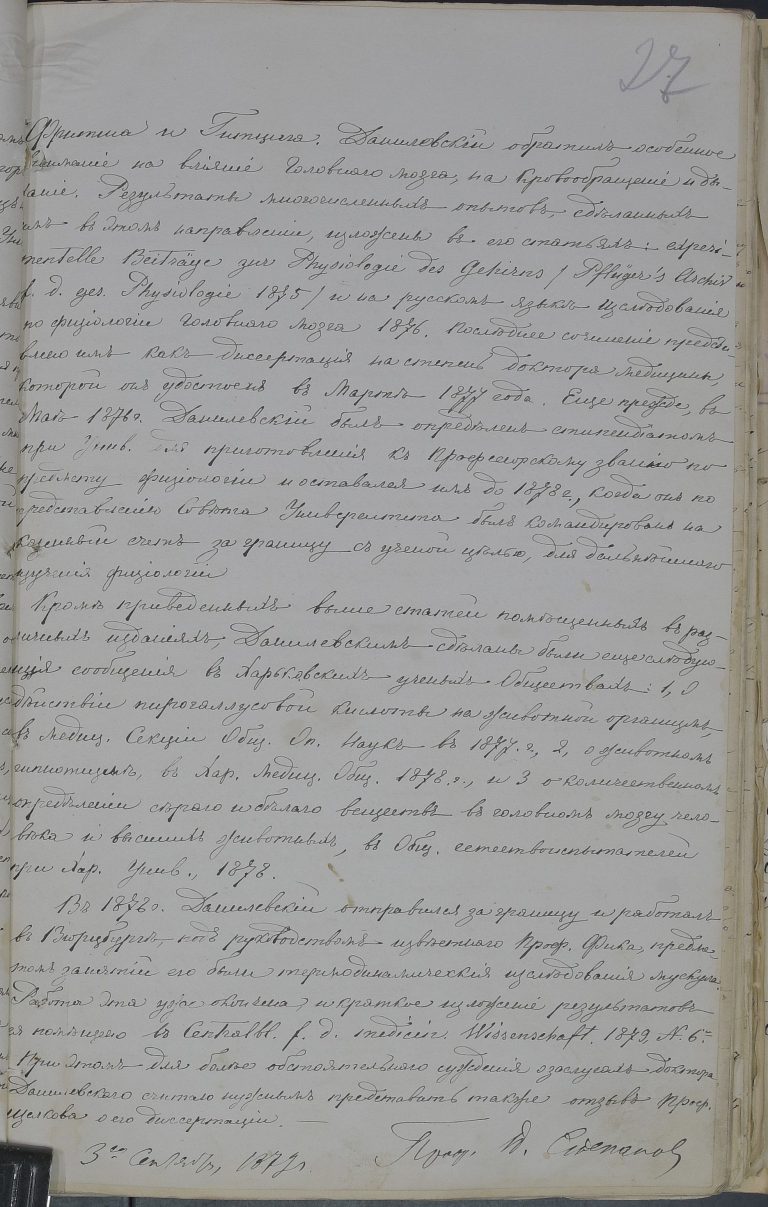 27
Фритша и Гитцига. Данилевскій обратилъ особенное
вниманіе на вліяніе головнаго мозга, на кровообращеніе и ды-
ханіе. Результаты многочисленныхъ опытовъ, сдѣланныхъ
имъ въ этомъ направленіи, изложены въ его статьяхъ: experi-
mentelle Beiträge zur Physiologie des Gehirns / Pflüger's Archiv
f. d. ges. Physiologie 1875 / и на русскомъ языкѣ изслѣдованія
по физіологіи головнаго мозга 1876. Послѣднее сочиненіе предста-
влено имъ какъ диссертація на степень доктора медицины,
которой онъ удостоенъ въ Мартѣ 1877 года. Еще прежде, въ
Маѣ 1876 г. Данилевскій былъ опредѣленъ стипендіатомъ
при Унив. для приготовленія къ профессорскому званію по
предмету физіологіи и оставался имъ до 1878 г., когда онъ по
представленію Совѣта Университета былъ командированъ на
казенный счетъ за границу съ ученой цѣлью, для дальнѣйшаго
изученія физіологіи
Кромѣ приведенныхъ выше статей помѣщенныхъ въ раз-
личныхъ изданіяхъ, Данилевскимъ сдѣланы были еще слѣдую-
щія сообщенія въ Харьковскихъ ученыхъ Обществахъ: 1, О
дѣйствіи пирогаллусовой кислоты на животный организмъ,
въ Медиц. Секціи Общ. Оп. Наукъ въ 1877. г, 2, о животномъ
гипнотизмѣ, въ Хар. Медиц. Общ. 1878. г., и 3 о количественномъ
опредѣленіи сѣраго и бѣлаго веществъ въ головномъ мозгу чело-
вѣка и высшихъ животныхъ, въ Общ. естествоиспытателей
при Хар. Унив., 1878.
Въ 1878 г. Данилевскій отправился за границу и работалъ
въ Вюрцбургѣ, подъ руководствомъ извѣстнаго Проф. Фика, предме-
томъ занятій его были термодинамическія изслѣдованія мускула.
Работа эта уже окончена, и краткое изложеніе результатовъ
ея помѣщено въ Centralbl. f. d. medicin. Wissenschaft. 1879, N. 6.
При этомъ для болѣе обстоятельнаго сужденія о заслугахъ доктора
Данилевскаго считаю нужнымъ представить также отзывъ Проф.
Щелкова о его диссертаціи. —
3го Сентября, 1879 г. Проф. П. Степановъ